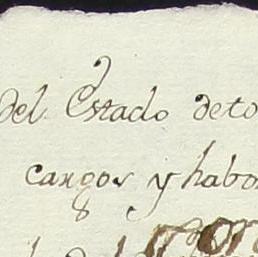 del Estado de to
cargos y habo